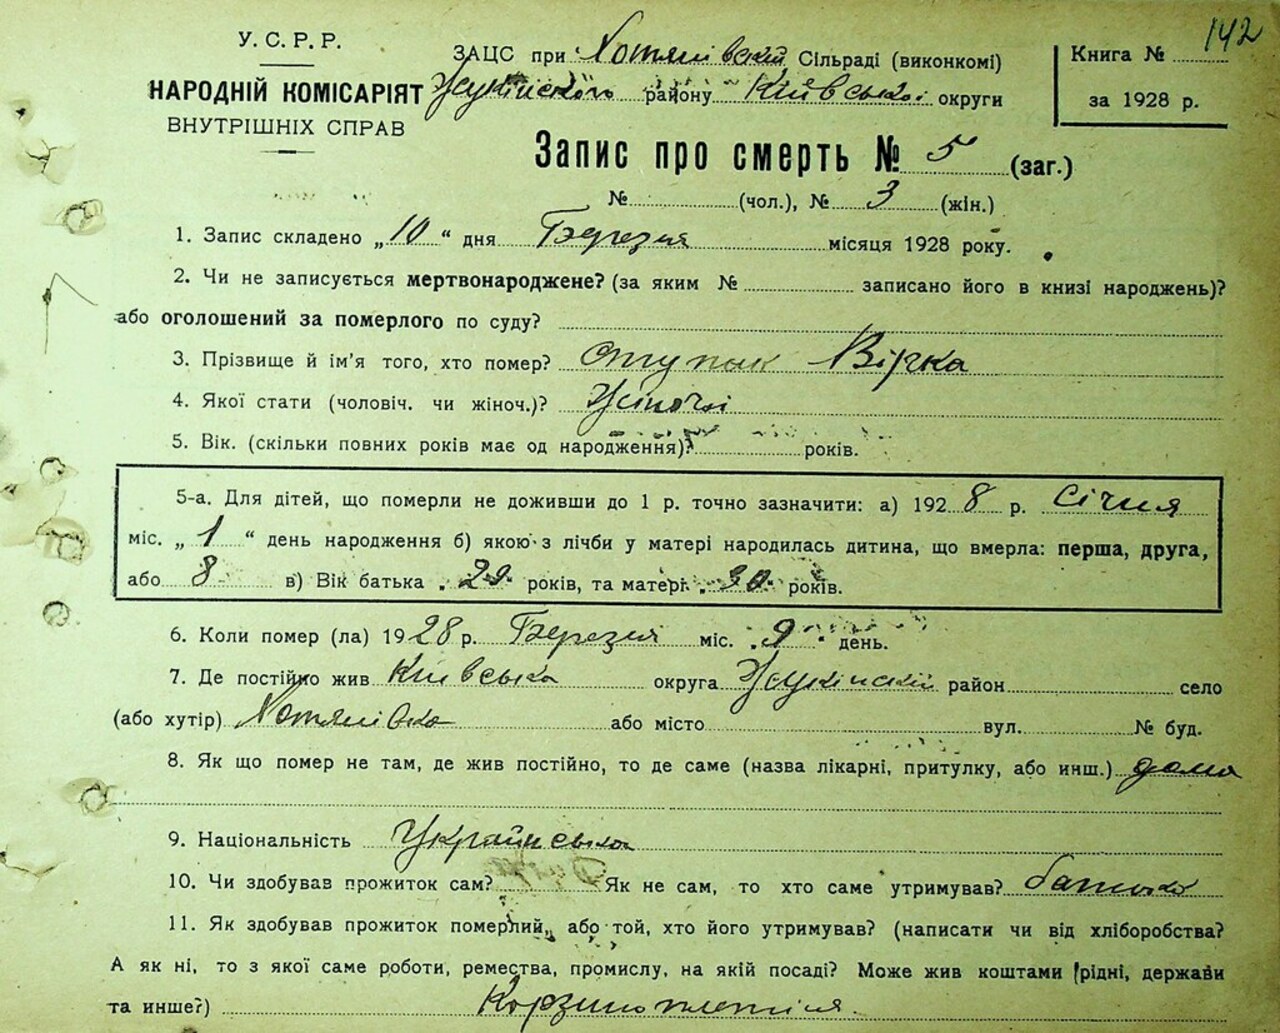 142
У. С. Р. Р.
НАРОДНІЙ КОМІСАРІЯТ
ВНУТРІШНІХ СПРАВ
ЗАЦС при Хотянівській Сільраді (виконкомі)
Жукінського району Київської округи
Книга №
за 1928 р.
Запис про смерть № 5 (заг.)
№ (чол.), № 3 (жін.)
1. Запис складено „10“ дня Березня місяця 1928 року.
2. Чи не записується мертвонароджене? (за яким № записано його в книзі народжень)?
або оголошений за померлого по суду?
3. Прізвище й ім'я того, хто помер? Ступак Вірка
4. Якої стати (чоловіч. чи жіноч.)? Жіночі
5. Вік. (скільки повних років має од народження)? років.
5-а. Для дітей, що померли не доживши до 1 р. точно зазначити: а) 1928 р. Січня
міс. „1“ день народження б) якою з лічби у матері народилась дитина, що вмерла: перша, друга,
або 8 в) Вік батька 29 років, та матері 30 років.
6. Коли помер (ла) 1928 р. Березня міс. „9“ день.
7. Де постійно жив Київська округа Жукінський район село
(або хутір) Хотянівка або місто вул. № буд.
8. Як що помер не там, де жив постійно, то де саме (назва лікарні, притулку, або инш.) дома
9. Національність Українська
10. Чи здобував прожиток сам? Як не сам, то хто саме утримував? батько
11. Як здобував прожиток померлий, або той, хто його утримував? (написати чи від хліборобства?
А як ні, то з якої саме роботи, ремества, промислу, на якій посаді? Може жив коштами (рідні, держави
та инше?) Корзиноплетіня.